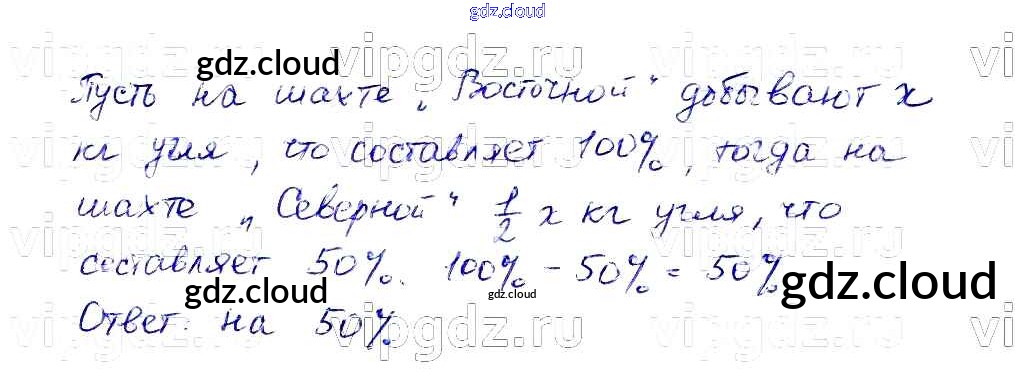 gdz.cloud
gdz.cloud
vipgdz.ru vipgdz.ru vi
gdz.cloud
Пусть на шахте „Восточной“ добывают x
кг угля, что составляет 100%, тогда на
vipgdz.ru vipgdz.ru vi
шахте „Северной“ 1/2 x кг угля, что
vipgdz.ru vipgdz.ru vi
составляет 50%. 100% - 50% = 50%
gdz.cloud gdz.cloud gdz.cloud
Ответ: на 50%.
vipgdz.ru vipgdz.ru vi